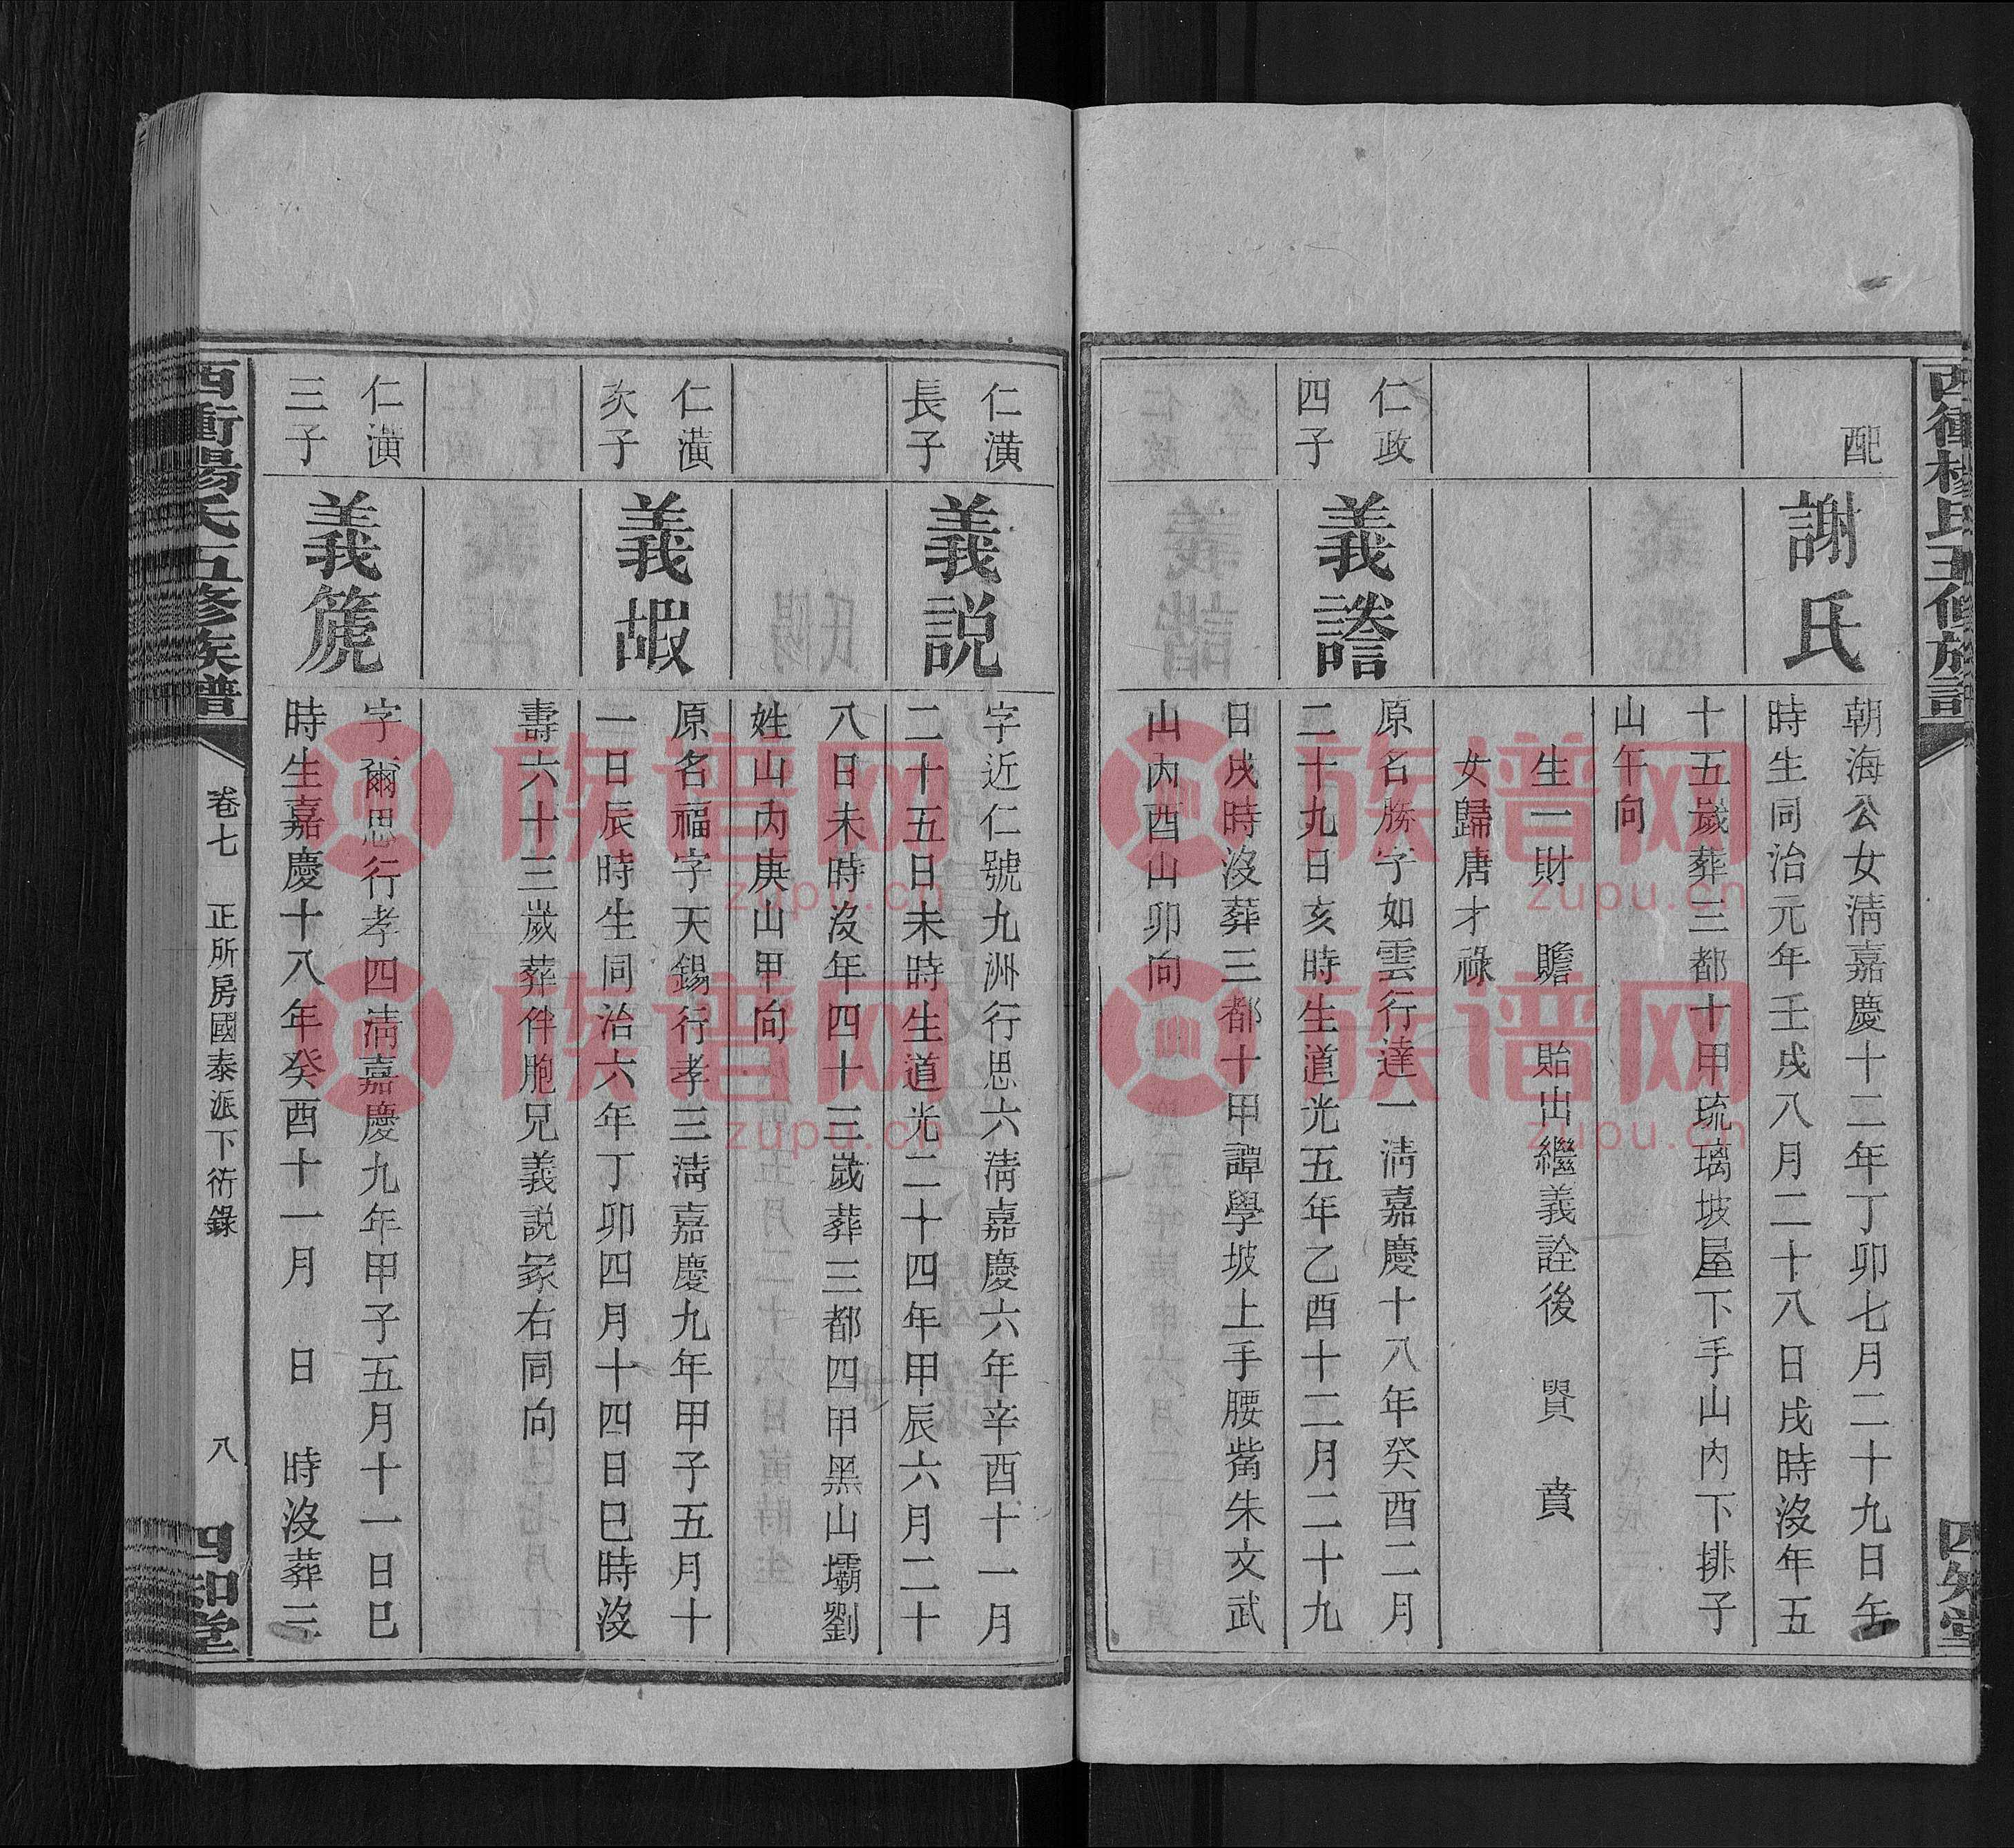 配
謝氏
朝海公女淸嘉慶十二年丁卯七月二十九日午
時生同治元年壬戌八月二十八日戌時沒年五
十五歲葬三都十甲琉璃坡屋下手山內下排子
山午向
生一財 贍 貽出繼義詮後 賢 賁
女歸唐才祿
仁政
四子
義謄
原名勝字如雲行達一淸嘉慶十八年癸酉二月
二十九日亥時生道光五年乙酉十二月二十九
日戌時沒葬三都十甲譚學坡上手腰嘴朱文武
山內酉山卯向
仁潢
長子
義説
字近仁號九洲行思六淸嘉慶六年辛酉十一月
二十五日未時生道光二十四年甲辰六月二十
八日未時沒年四十三歲葬三都四甲黑山壩劉
姓山內庚山甲向
仁潢
次子
義嘏
原名福字天錫行孝三淸嘉慶九年甲子五月十
一日辰時生同治六年丁卯四月十四日巳時沒
壽六十三歲葬伴胞兄義説冢右同向
仁潢
三子
義篪
字爾思行孝四淸嘉慶九年甲子五月十一日巳
時生嘉慶十八年癸酉十一月 日 時沒葬三
西衝楊氏五修族譜
卷七 正所房國泰派下衍錄
八
四知堂
族谱网
zupu.cn
族谱网
zupu.cn
族谱网
zupu.cn
族谱网
zupu.cn